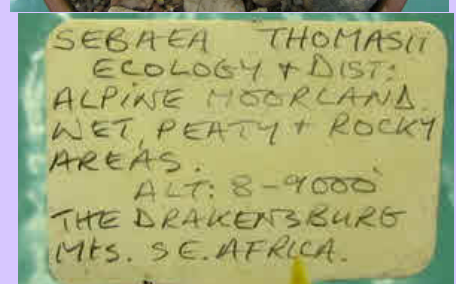 SEBAEA THOMASII
ECOLOGY + DIST:
ALPINE MOORLAND.
WET, PEATY + ROCKY
AREAS.
ALT: 8-9000'
THE DRAKENSBURG
Mts. S E. AFRICA.